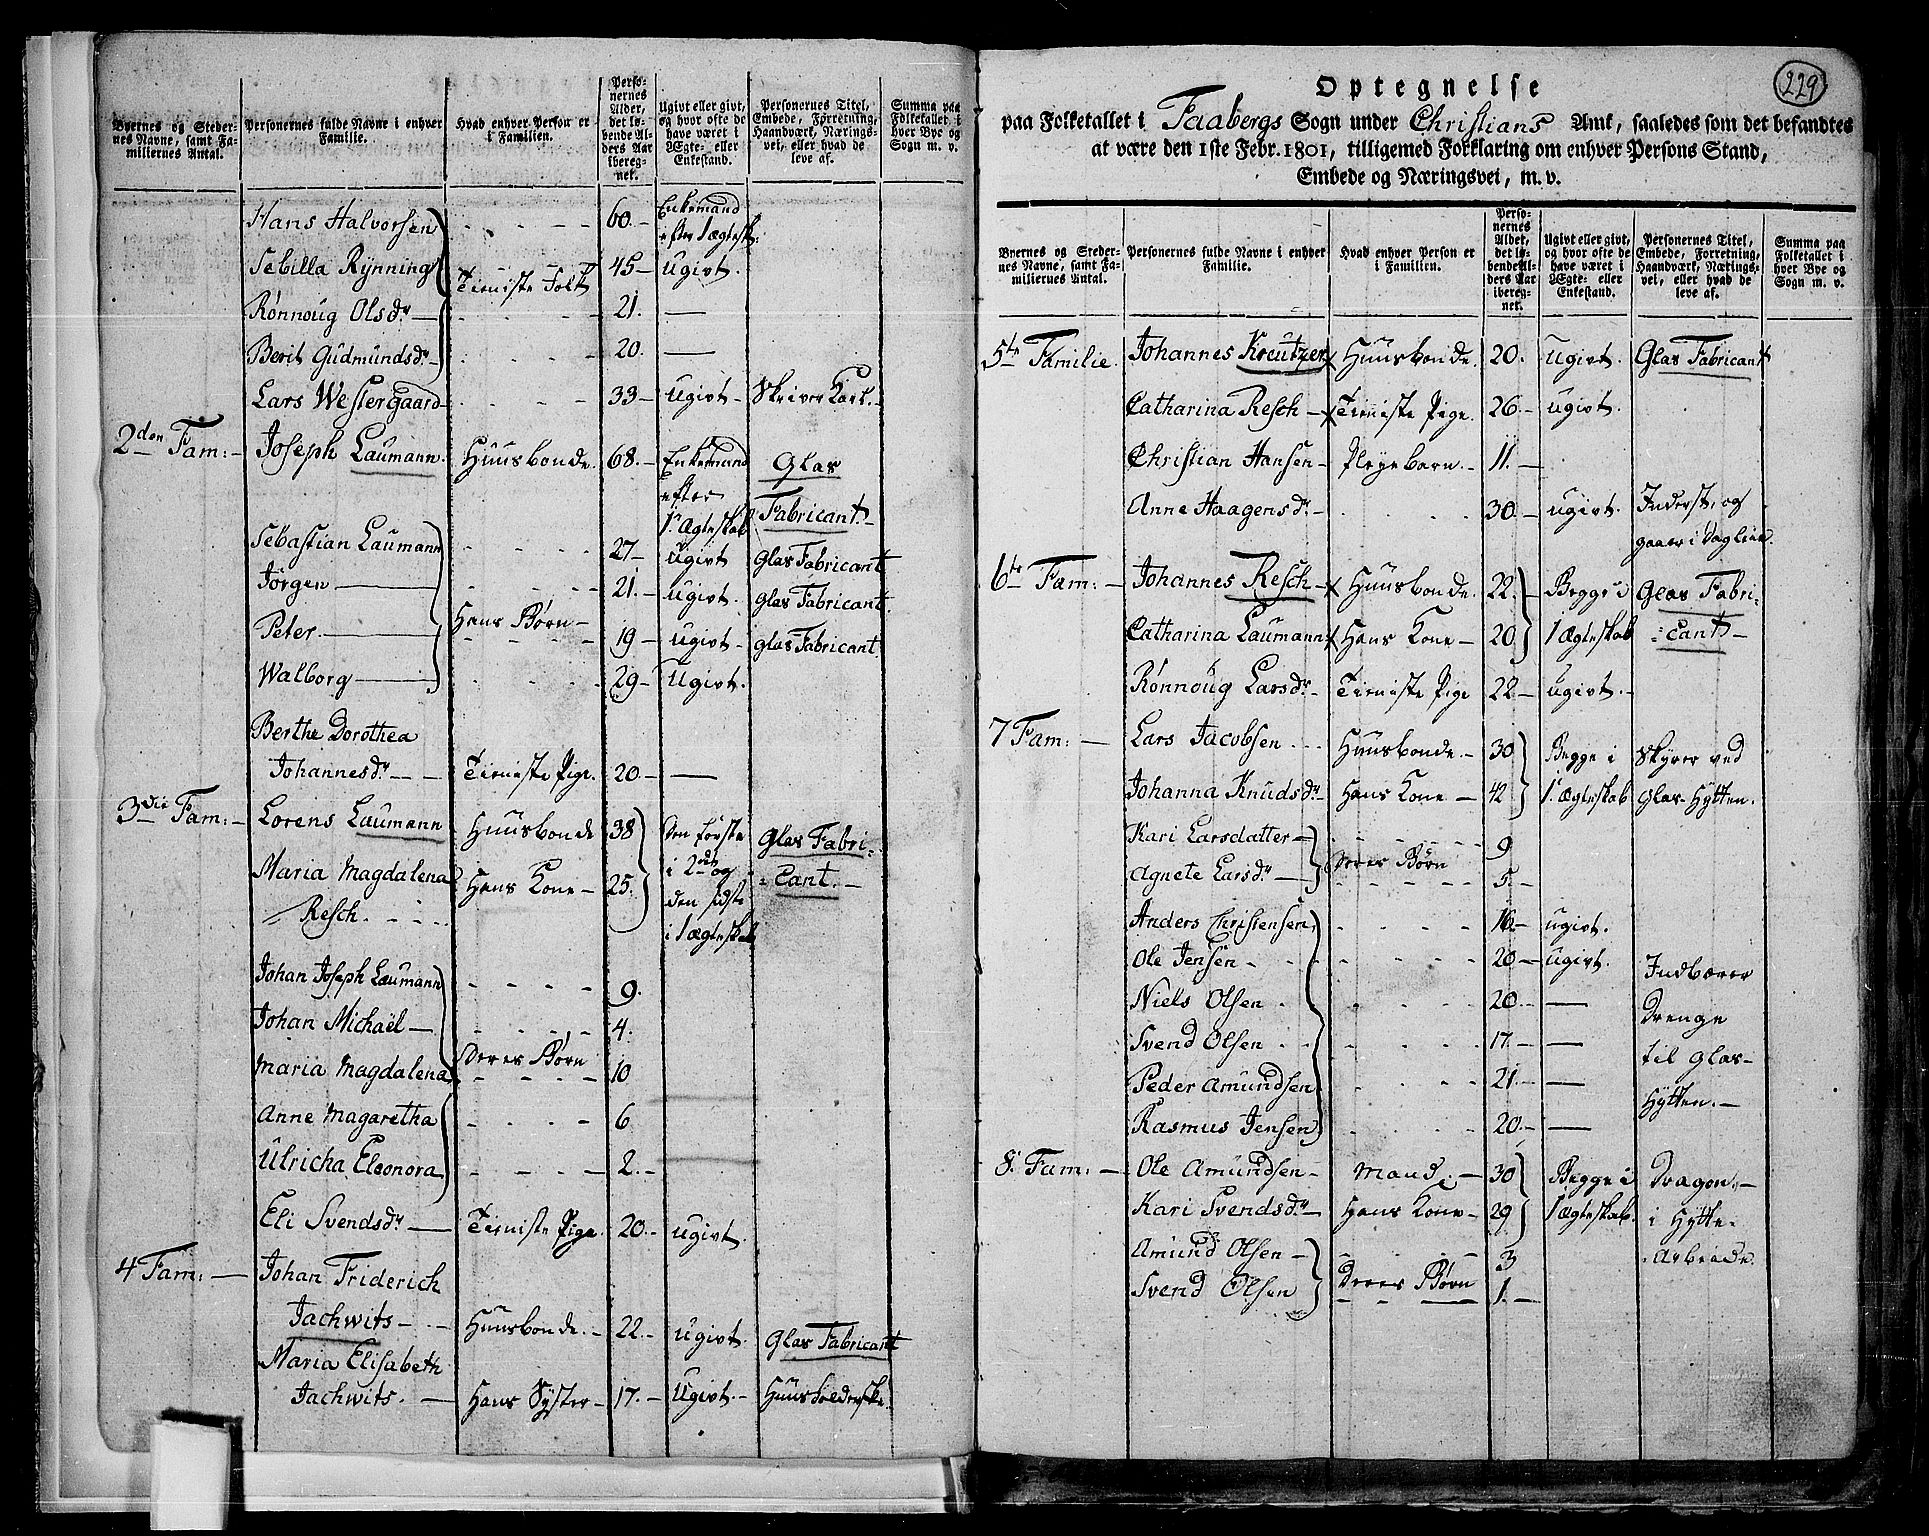 Byernes og Stedernes Navne, samt Familiernes Antal.
Personernes fulde Navne i enhver Familie.
Hvad enhver Person er i Familien.
Personernes Alder, det løbende Alders Aar iberegnet.
Ugivt eller givt, og hvor ofte de have været i Ægte- eller Enkestand.
Personernes Titel, Embede, Forretning, Haandværk, Næringsvei, eller hvad de leve af.
Summa paa Folketallet i hver Bye og Sogn m. v.
Hans Halvorsen - - - - 60.- Enkemand efter 1 ægtesk:
Sebilla Rÿnning Tieniste Folk 45- ugivt.
Rønnoug Olsdr — - - - 21. —
Berit Gudmundsdr - - - - 20. —
Lars Westergaard - - - - 33- ugivt- Skriver Karl.-
2den Fam:- Joseph Laumann. Huusbonde. 68.- Enkemand efter 1. ægteskab Glas Fabricant.-
Sebastian Laumann - - - - 27- ugivt Glas Fabricant
Jørgen — - - - - 21.- ugivt. Glas Fabricant.
Peter. — Hans Børn - 19- ugivt- glas Fabricant.
Walborg — - - - - 29- Ugivt.
Berthe Dorothea
Johannesdr - - Tieniste Pige. 20.- —
3die Fam:- Lorens Laumann Huusbonde 38 Den første i 2det og den sidste i 1 ægteskab Glas Fabricant.-
Maria Magdalena Hans Kone- 25.
Resch.
Johan Joseph Laumann - - - - 9.
Johan Michaël - - - - - 4.
Maria Magdalena Deres Børn 10
Anne Magaretha - - - - 6
Ulricha Eleonora - - - - 2.-
Eli Svendsdr — Tieniste Pige. 20.- ugivt.
4 Fam: — Johan Friderich
Jachwits- Huusbonde.- 22.- ugivt. Glas Fabricant
Maria Elisabeth
Jachwits.- Hans Syster- 17.- Ugivt.- Huusholderske.
229
Optegnelse
paa Folketallet i Faabergs Sogn under Christians Amt, saaledes som det befandtes
at være den 1ste Febr. 1801, tilligemed Forklaring om enhver Persons Stand,
Embede og Næringsvei, m. v.
Byernes og Stedernes Navne, samt Familiernes Antal.
Personernes fulde Navne i enhver Familie.
Hvad enhver Person er i Familien.
Personernes Alder, det løbende Alders Aar iberegnet.
Ugivt eller givt, og hvor ofte de have været i Ægte- eller Enkestand.
Personernes Titel, Embede, Forretning, Haandværk, Næringsvei, eller hvad de leve af.
Summa paa Folketallet i hver Bye og Sogn m. v.
5te Familie. Johannes Kreutzer x Huusbonde. 20. ugivt. Glas Fabricant
Catharina Resch- x Tieniste Pige. 26- ugivt.
Christian Hansen- Plejebarn.- 11.-
Anne Haagensdr- - - - 30- ugivt. Inderst, og gaaer i Dagleie.
6te Fam:- Johannes Resch- x Huusbonde. 22. Begge i 1 ægteskab Glas Fabricant-
Catharina Laumann x Hans Kone- 20
Rønnoug Larsdr- Tieniste Pige 22- ugivt.-
7 Fam: — Lars Jacobsen - - - Huusbonde- 30 Begge i 1. ægteskab Skyrer ved Glas-Hÿtten.
Johanna Knudsdr- Hans Kone - 42
Kari Larsdatter- - - - - 9
Agnete Larsdr — Deres Børn 5.-
Anders Christensen - - - - 16- ugivt.
Ole Jensen - - - - - - 20- ugivt. Indbærer
Niels Olsen - - - - - 20- — Drenge
Svend Olsen - - - - - - 17.- — til Glas-
Peder Amundsen - - - - 21.- — Hÿtten.-
Rasmus Jensen - - - - 20.- —
8. Fam:- Ole Amundsen- Mand.- 30 Begge i 1 ægteskab. Dragon.-
Kari Svendsdr- Hans Kone- 29 i Hÿtte-
Amund Olsen - - - - 3 Arbeide.
Svend Olsen Deres Børn 1.-